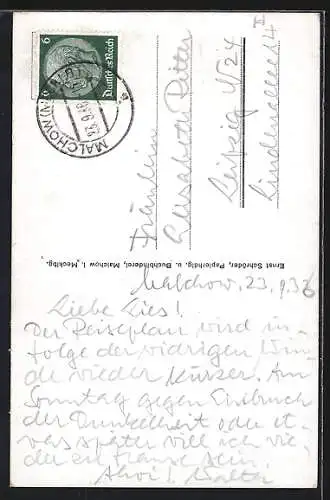 6
Deutsches Reich
MALCHOW
23.9.36
Fräulein
Elisabeth Ritter
Leipzig N 24
Lindenallee 14
II
Ernst Schröder, Papierhdlg. u. Buchbinderei, Malchow i. Mecklbg.
Malchow, 23.9.36
Liebe Lies!
Der Reiseplan wird in-
folge der widrigen Win-
de wieder kürzer. Am
Sonntag gegen Einbruch
der Dunkelheit oder et-
was später will ich wie-
der zu Hause sein.
Ahoi! Walter